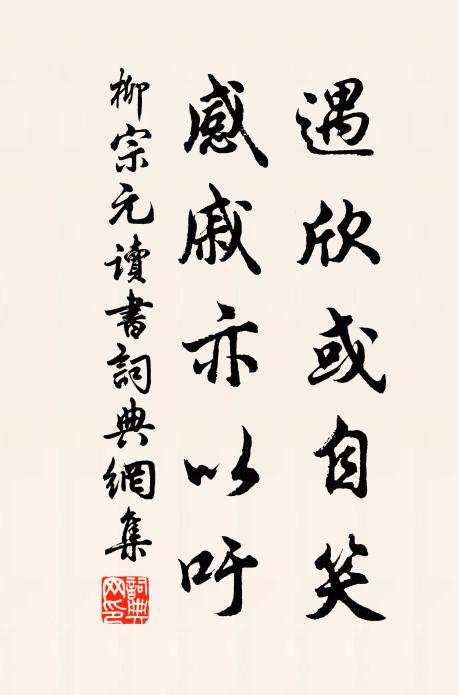 遇欣或自笑
感戚亦以吁
柳宗元讀書詞典網集
詞典網印